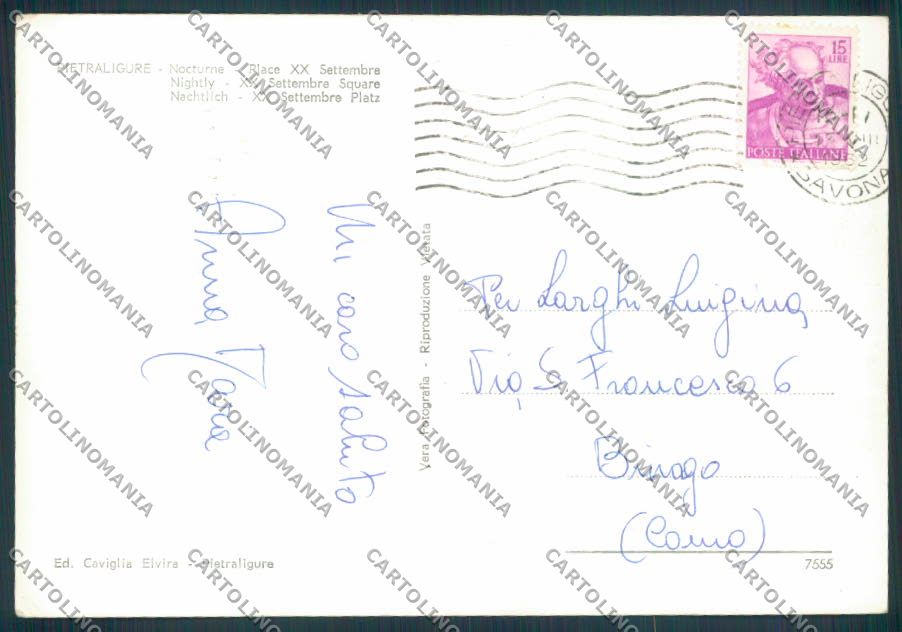 PIETRALIGURE - Nocturne - Place XX Settembre
Nightly - XX Settembre Square
Nachtlich - XX Settembre Platz
Un caro saluto
Anna Maria
Vera Fotografia - Riproduzione Vietata
15
LIRE
POSTE ITALIANE
SAVONA
Per Larghi Luigina
Via S. Francesco 6
Binago
(Como)
Ed. Caviglia Elvira - Pietraligure
7555
CARTOLINOMANIA